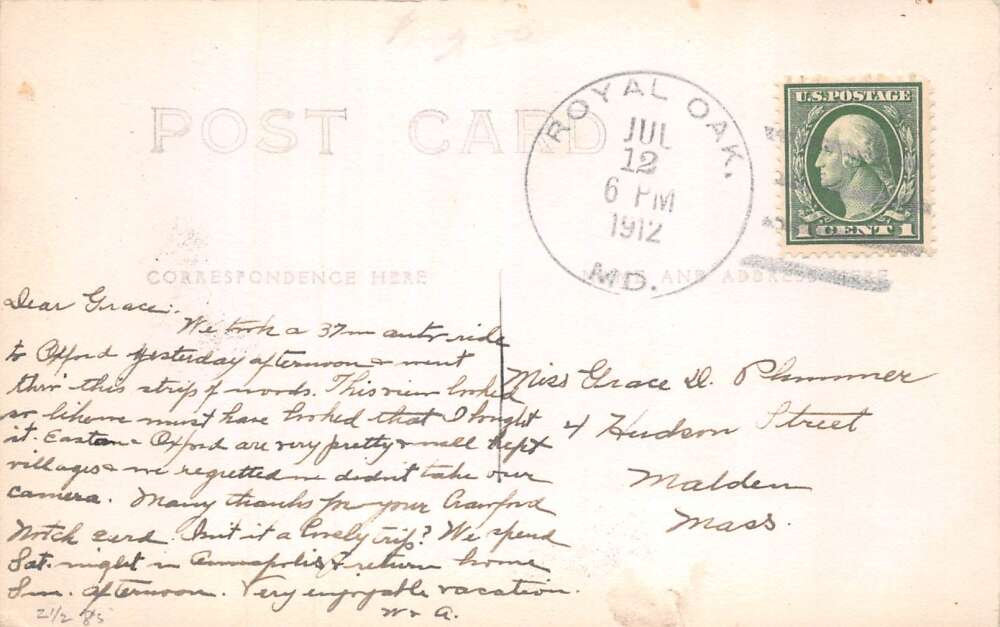 POST CARD
ROYAL OAK.
JUL
12
6 PM
1912
MD.
U.S. POSTAGE
1 CENT 1
CORRESPONDENCE HERE
NAME AND ADDRESS HERE
Dear Grace:
We took a 37m auto ride
to Oxford yesterday afternoon & went
thro' this strip of woods. This view looked
so like we must have looked that I bought
it. Easton & Oxford are very pretty & well kept
villages & we regretted we didn't take our
camera. Many thanks for your Crawford
Notch card. Isn't it a lovely trip? We spend
Sat. night in Annapolis & return home
Sun. afternoon. Very enjoyable vacation.
W & A.
Miss Grace D. Plummer
4 Hudson Street
Malden
Mass.
2 1/2 85